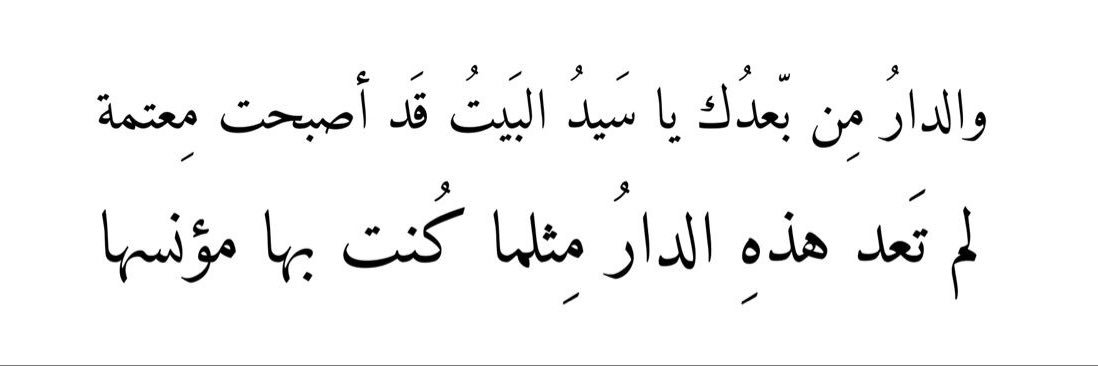 والدارُ مِن بّعدُك يا سَيدُ البَيتُ قَد أصبحت مِعتمة
لم تَعد هذهِ الدارُ مِثلما كُنت بها مؤنسها